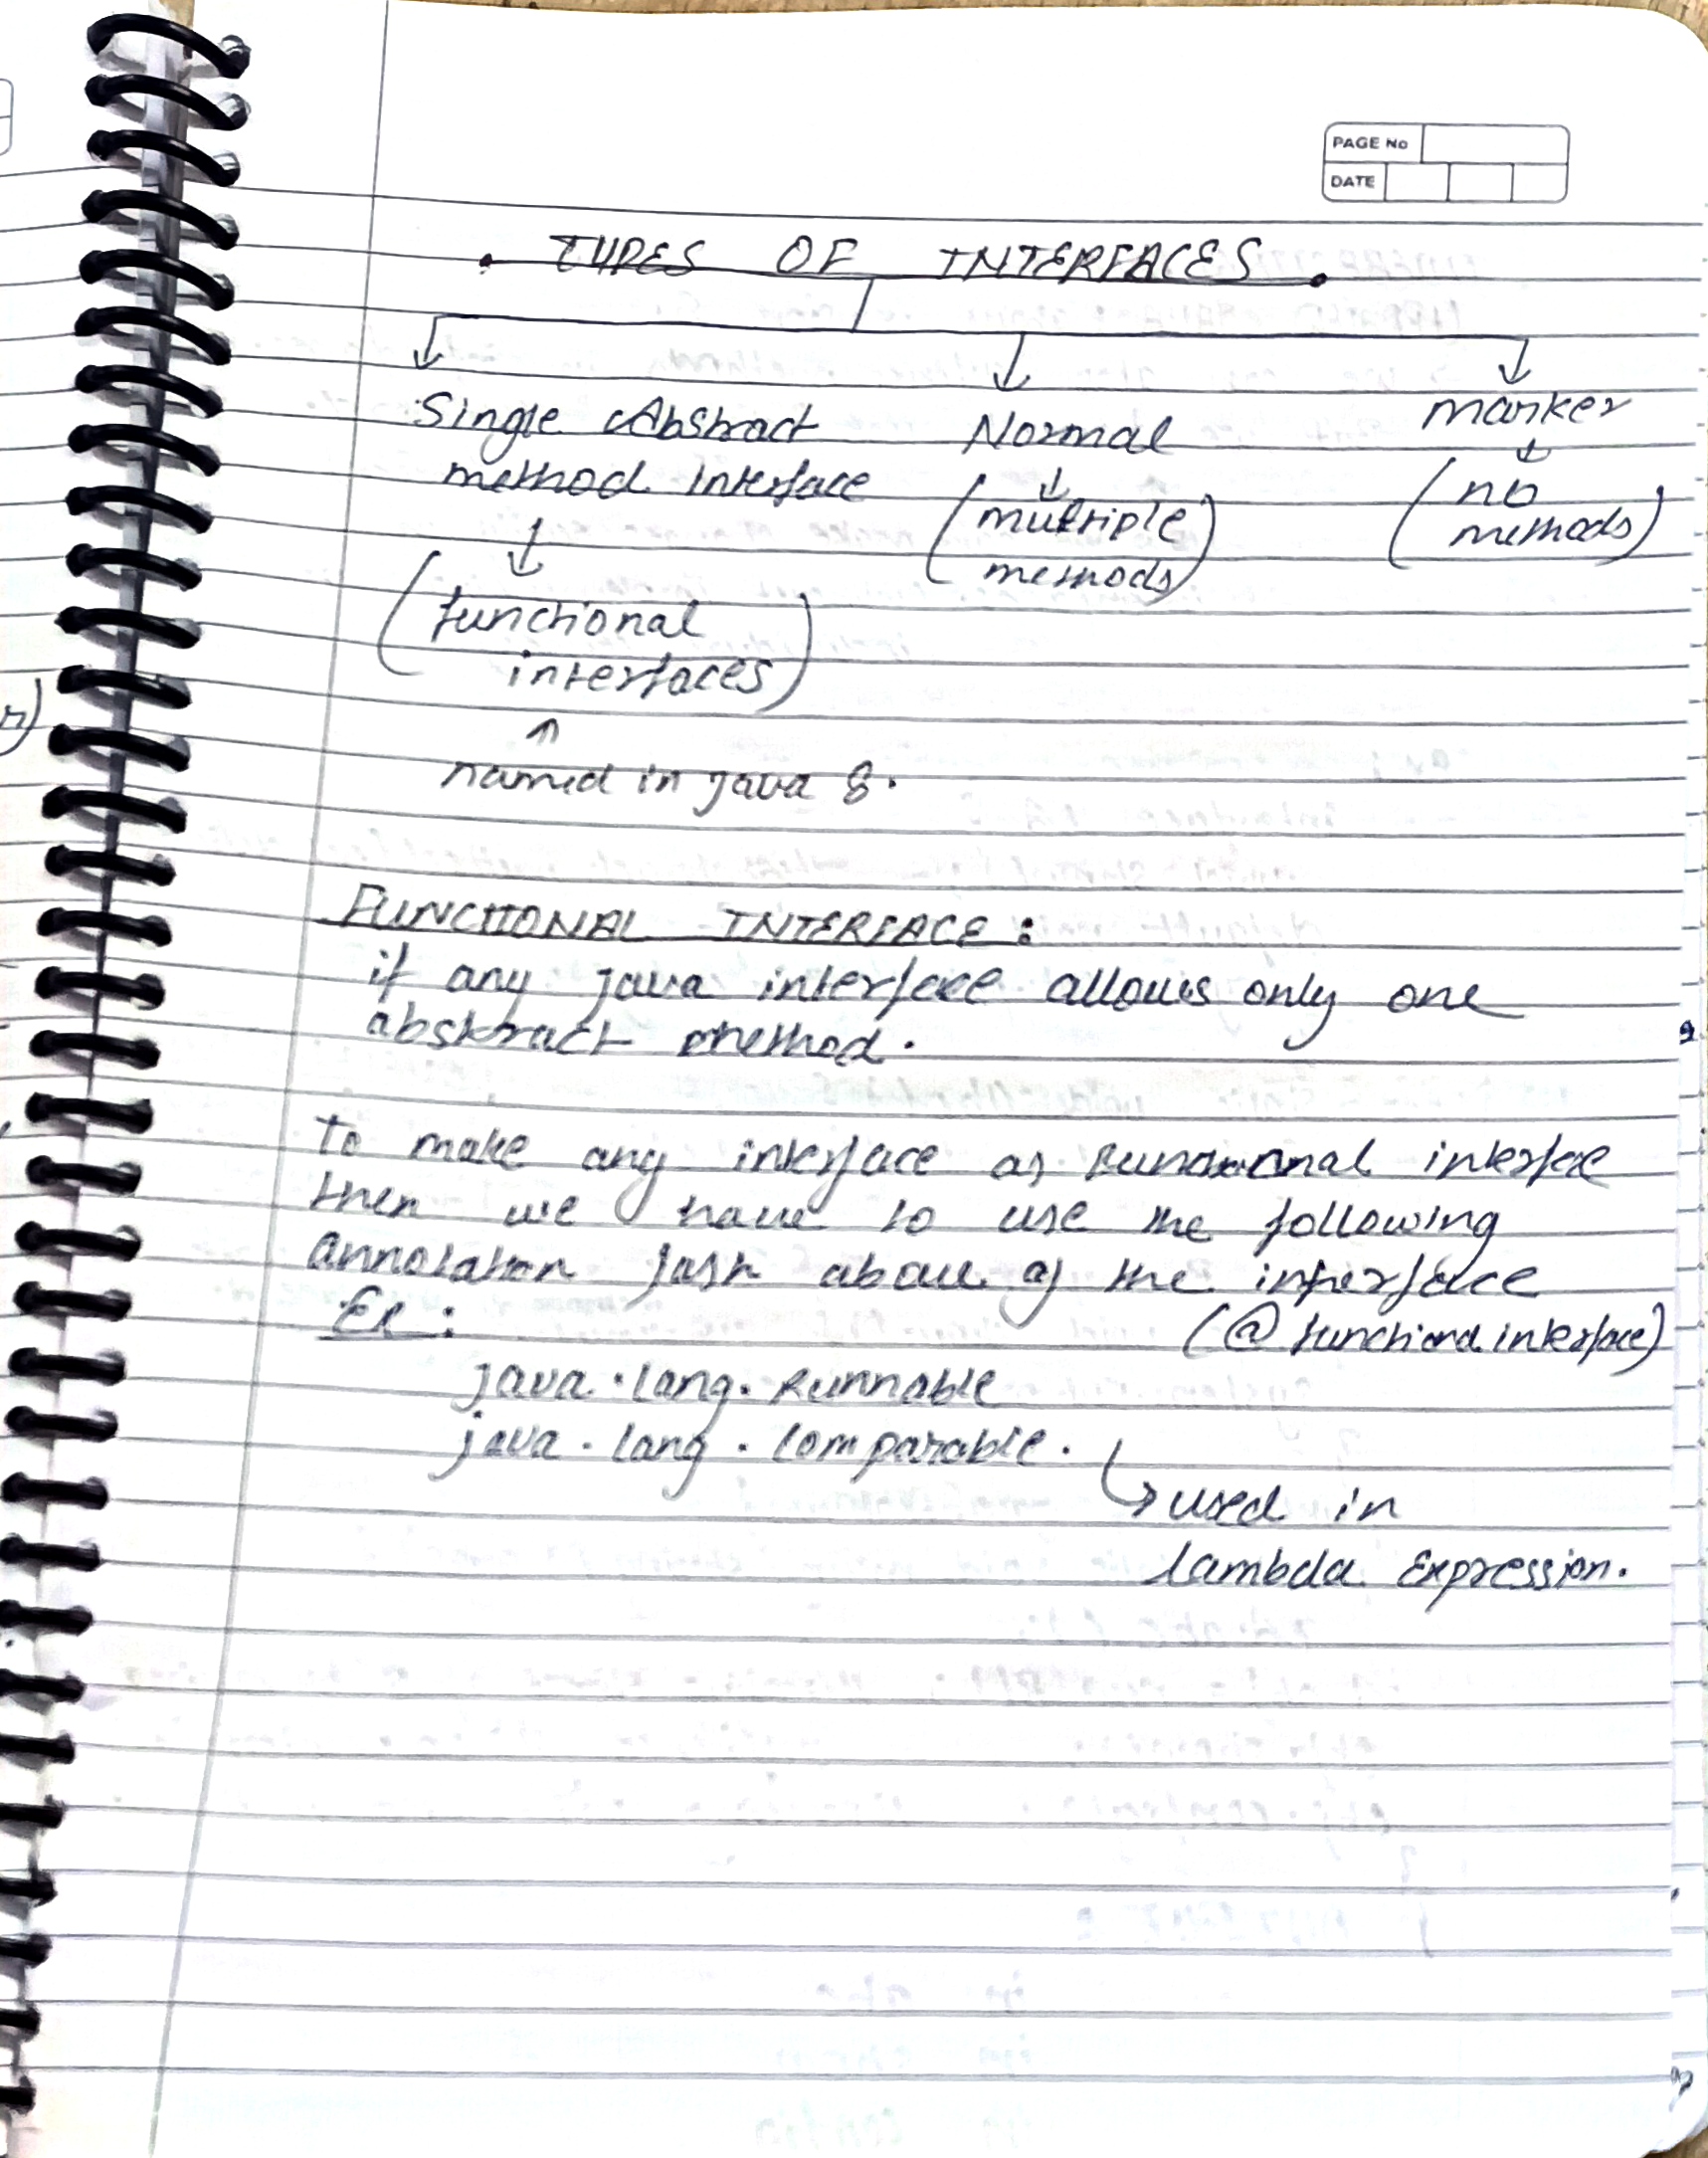 PAGE No
DATE
. TYPES OF INTERFACES .
Single Abstract Normal marker
method Interface (multiple (no
methods) methods)
(functional
interfaces)
named in java 8.
FUNCTIONAL INTERFACE:
if any java interface allows only one
abstract method.
To make any interface as Functional interface
then we have to use the following
annotation just above of the interface
Ex: (@ functional interface)
java.lang.Runnable
java.lang.comparable.
used in
lambda Expression.